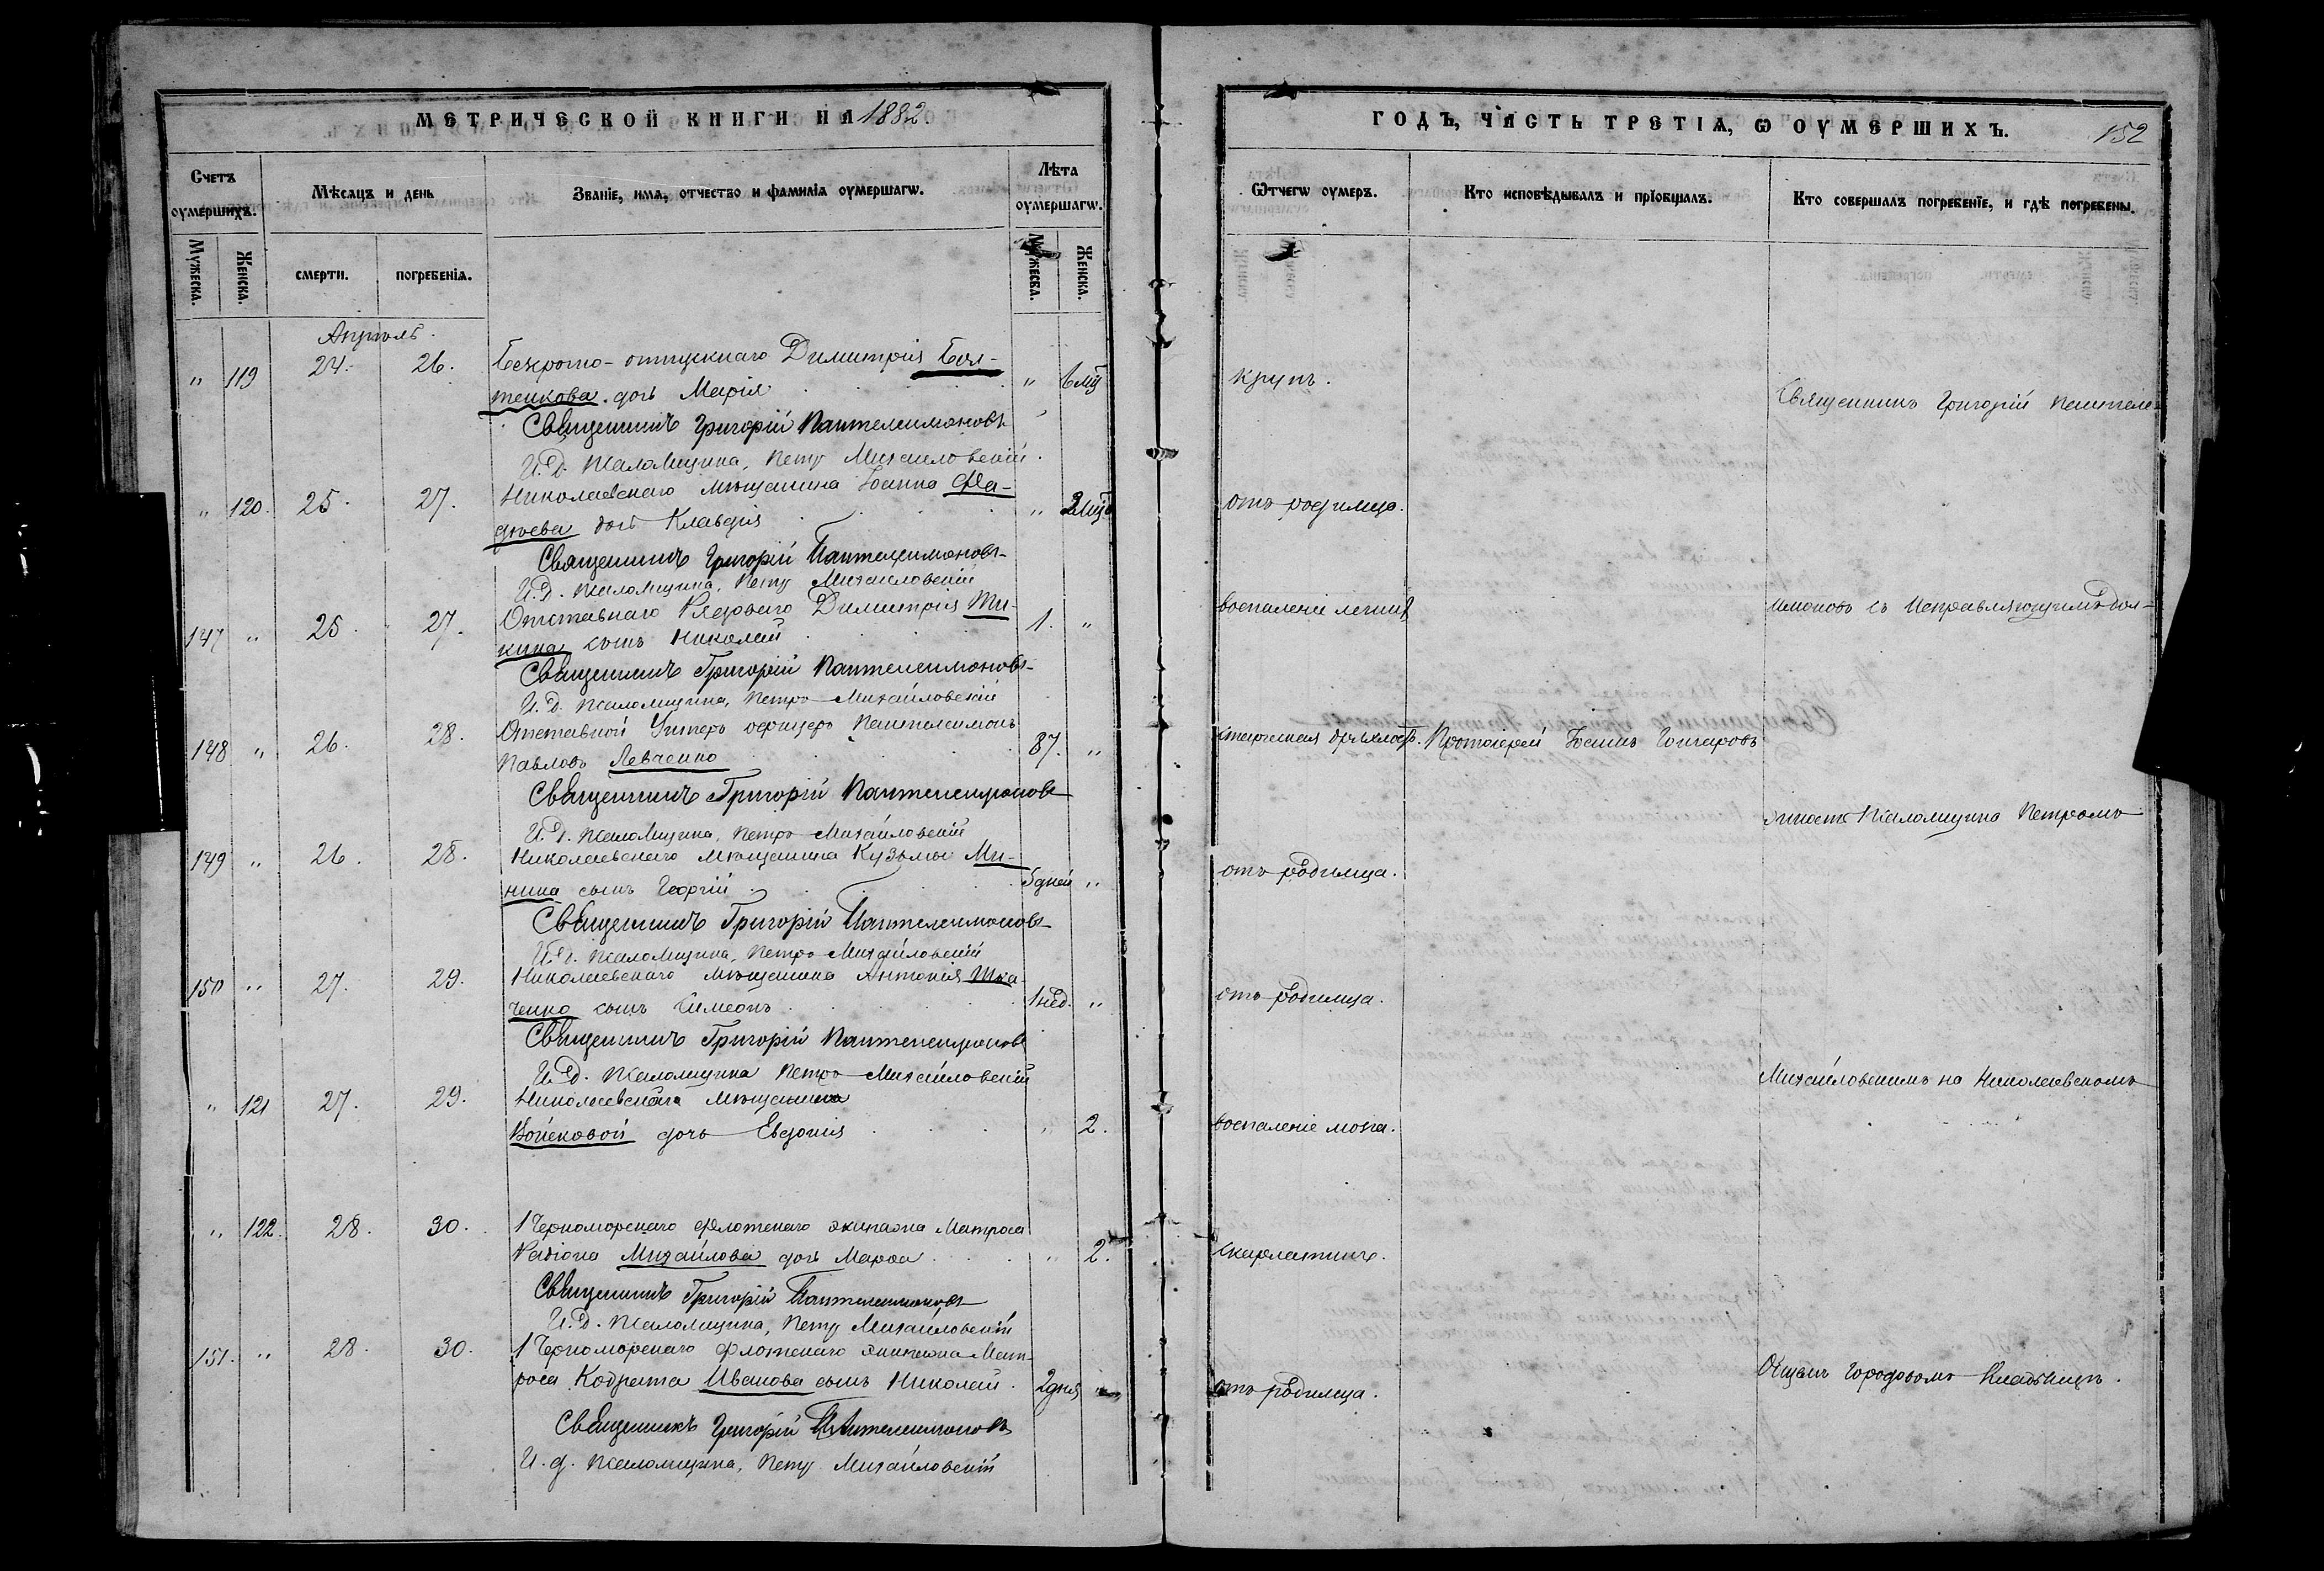 МЕТРИЧЕСКОЙ КНИГИ НА 1882.
Счетъ оумершихъ.
Мѣсяцъ и день
Званіе, имя, отчество и фамилія оумершагѡ.
Лѣта оумершагѡ.
Мужеска. Женска. смерти. погребенія. Мужеска. Женска.
Апрѣль.
" 119 24. 26. Безсрочно-отпускнаго Димитрія
тенкова дочь Марія "
Священникъ Григорій Пантелеимоновъ
И. Д. Псаломщика, Петръ Михайловскій.
" 120. 25. 27. Николаевскаго мѣщанина Іоанна Фа-
дѣева дочь Клавдія "
Священникъ Григорій Пантелеимоновъ
И. Д. Псаломщика, Петръ Михайловскій
147 " 25. 27. Отставнаго Рядоваго Димитрія Ми-
кина сынъ Николай 1. "
Священникъ Григорій Пантелеимоновъ
И. Д. Псаломщика, Петръ Михайловскій
148 " 26. 28. Отставной Унтеръ офицеръ Пантелеимонъ
Павловъ Левченко 87. "
Священникъ Григорій Пантелеимоновъ
И. Д. Псаломщика, Петръ Михайловскій
149 " 26. 28. Николаевскаго мѣщанина Кузьмы Ми-
нина сынъ Георгій 5 дней "
Священникъ Григорій Пантелеимоновъ
И. Д. Псаломщика, Петръ Михайловскій
150 " 27. 29. Николаевскаго мѣщанина Антонія Тка-
ченко сынъ Симеонъ 1 нед. "
Священникъ Григорій Пантелеимоновъ
И. Д. Псаломщика Петръ Михайловскій
" 121 27. 29. Николаевскаго мѣщанина
дочь Евдокія " 2.
" 122. 28. 30. 1 Черноморскаго флотскаго экипажа Матроса
Михайлова дочь Марѳа " 2.
Священникъ Григорій Пантелеимоновъ
И. Д. Псаломщика, Петръ Михайловскій
151. " 28. 30. 1 Черноморскаго флотскаго экипажа Мат-
роса Кодрата Иванова сынъ Николай 2 дня "
Священникъ Григорій Пантелеимоновъ
И. д. Псаломщика, Петръ Михайловскій
ГОДЪ, ЧАСТЬ ТРЕТІЯ, Ѡ ОУМЕРШИХЪ. 152
Ѿчегѡ оумеръ.
Кто исповѣдывалъ и пріобщалъ.
Кто совершалъ погребеніе, и гдѣ погребены.
крупъ.
Священникъ Григорій Пантеле-
отъ родимца.
воспаленіе легкихъ
имоновъ съ Исправляющимъ дол-
старческая дряхлость. Протоіерей Іоаннъ Гончаровъ
жность Псаломщика Петромъ
отъ родимца.
отъ родимца.
Михайловскимъ на Николаевскомъ
воспаленіе мозга.
скарлатины.
Общемъ Городскомъ Кладбищѣ.
отъ родимца.